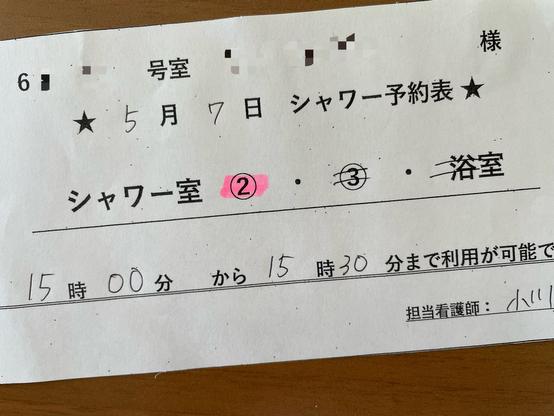 6 号室 様
★ 5月 7日 シャワー予約表 ★
シャワー室 ② ・ ③ ・ 浴室
15時 00分 から 15時30分まで利用が可能で
担当看護師： 小川